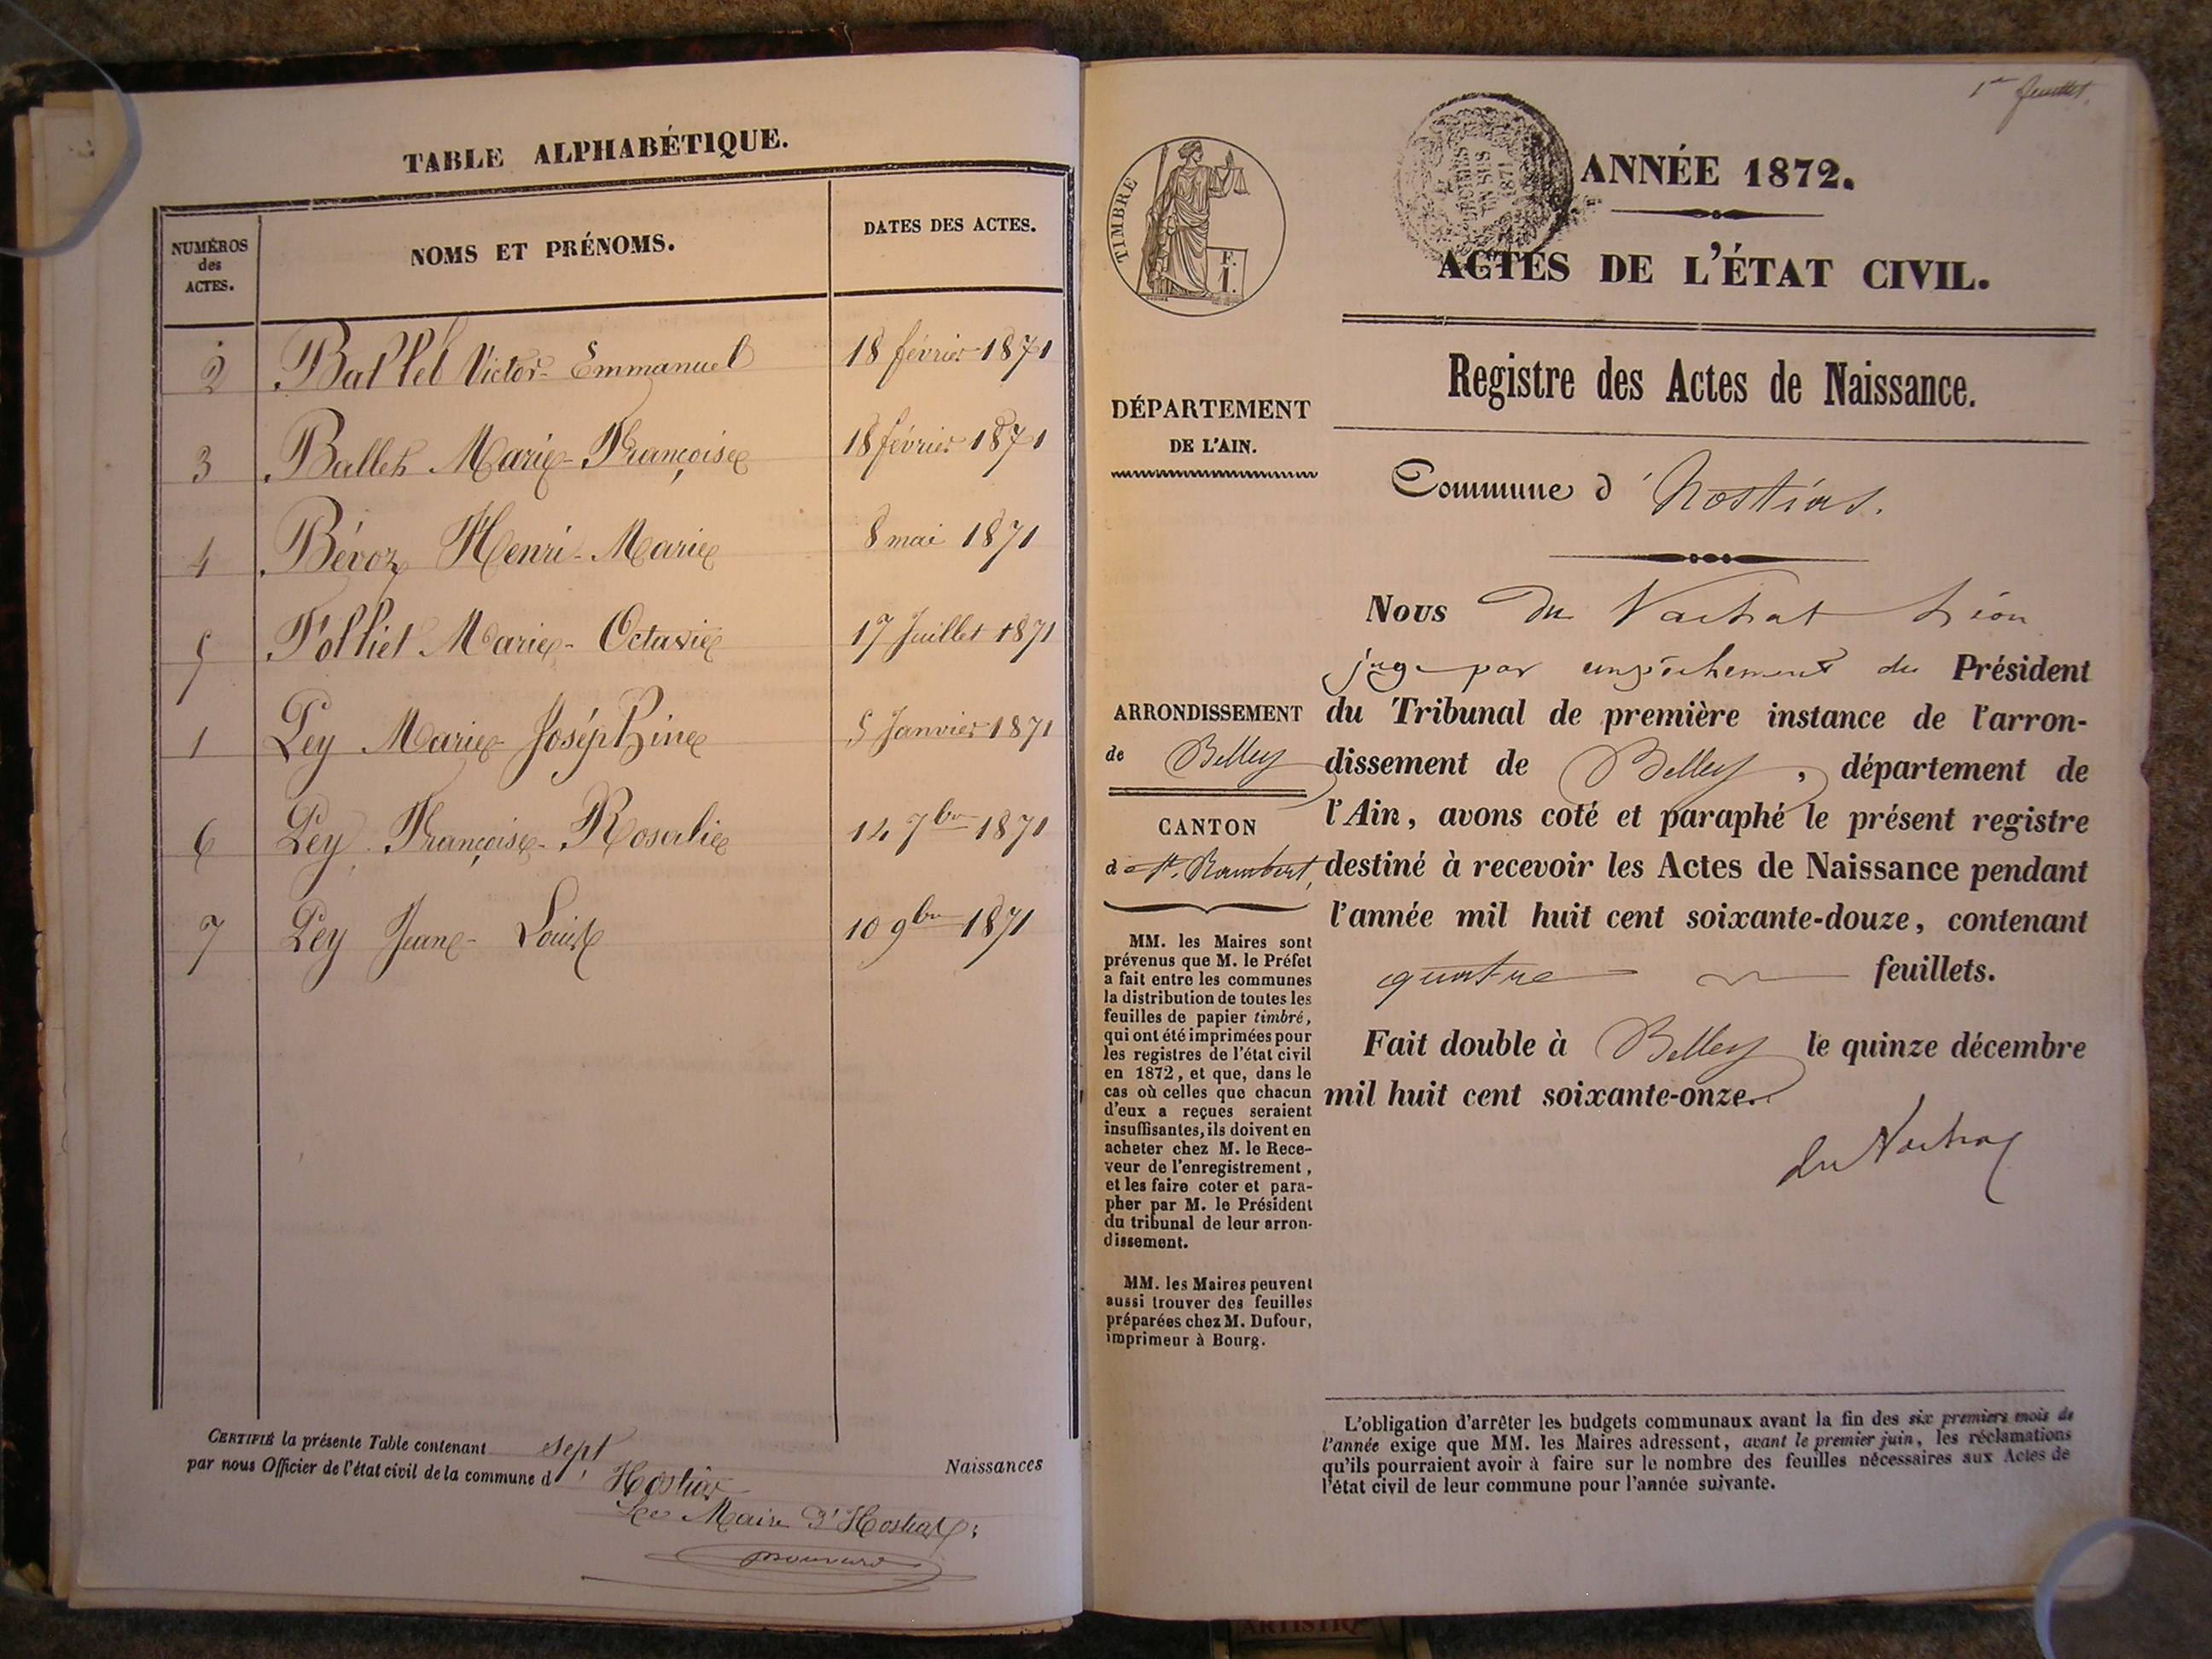 TABLE ALPHABÉTIQUE.
NUMÉROS
des
ACTES.
NOMS ET PRÉNOMS.
DATES DES ACTES.
2 Ballet Victor-Emmanuel 18 février 1871
3 Ballet Marie-Françoise 18 février 1871
4 Bévoz Henri-Marie 8 mai 1871
5 Folliet Marie-Octavie 17 Juillet 1871
1 Ley Marie-Joséphine 5 Janvier 1871
6 Ley Françoise-Rosalie 14 7bre 1871
7 Ley Jean-Louis 10 9bre 1871
CERTIFIÉ la présente Table contenant sept Naissances
par nous Officier de l'état civil de la commune d'Hostias
Le Maire d'Hostias;
1er feuillet.
TIMBRE
F.
1.
ANNÉE 1872.
ACTES DE L'ÉTAT CIVIL.
Registre des Actes de Naissance.
DÉPARTEMENT
DE L'AIN.
Commune d'Hostias.
Nous Du Vachat Léon
juge par empêchement du Président
du Tribunal de première instance de l'arron-
dissement de Belley, département de
l'Ain, avons coté et paraphé le présent registre
destiné à recevoir les Actes de Naissance pendant
l'année mil huit cent soixante-douze, contenant
quatre feuillets.
Fait double à Belley le quinze décembre
mil huit cent soixante-onze.
du Vachat
ARRONDISSEMENT
de Belley
CANTON
de St. Rambert,
MM. les Maires sont
prévenus que M. le Préfet
a fait entre les communes
la distribution de toutes les
feuilles de papier timbré,
qui ont été imprimées pour
les registres de l'état civil
en 1872, et que, dans le
cas où celles que chacun
d'eux a reçues seraient
insuffisantes, ils doivent en
acheter chez M. le Rece-
veur de l'enregistrement,
et les faire coter et para-
pher par M. le Président
du tribunal de leur arron-
dissement.
MM. les Maires peuvent
aussi trouver des feuilles
préparées chez M. Dufour,
imprimeur à Bourg.
L'obligation d'arrêter les budgets communaux avant la fin des six premiers mois de
l'année exige que MM. les Maires adressent, avant le premier juin, les réclamations
qu'ils pourraient avoir à faire sur le nombre des feuilles nécessaires aux Actes de
l'état civil de leur commune pour l'année suivante.